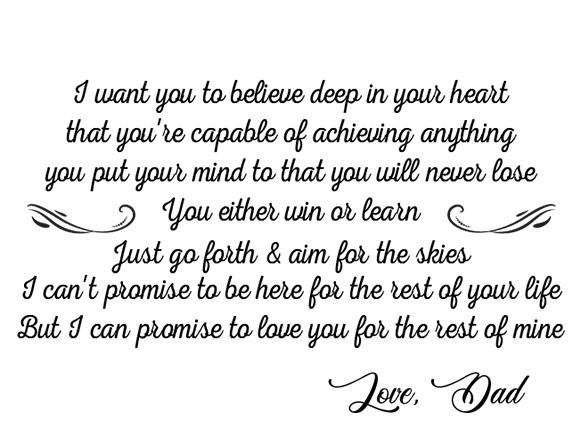 I want you to believe deep in your heart
that you're capable of achieving anything
you put your mind to that you will never lose
You either win or learn
Just go forth & aim for the skies
I can't promise to be here for the rest of your life
But I can promise to love you for the rest of mine
Love, Dad